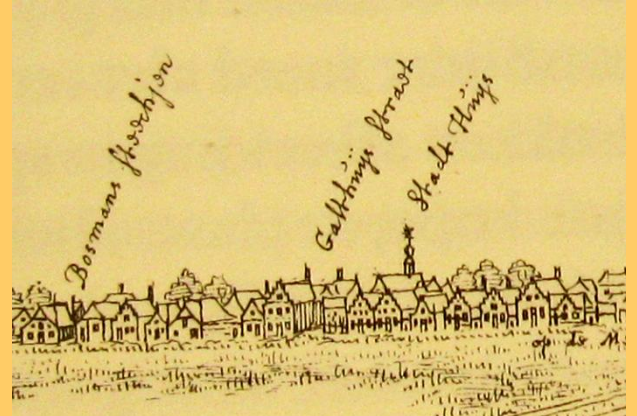 Bosmans Steechjen
Gasthüÿs Straet
Stadt Hüÿs
op de M